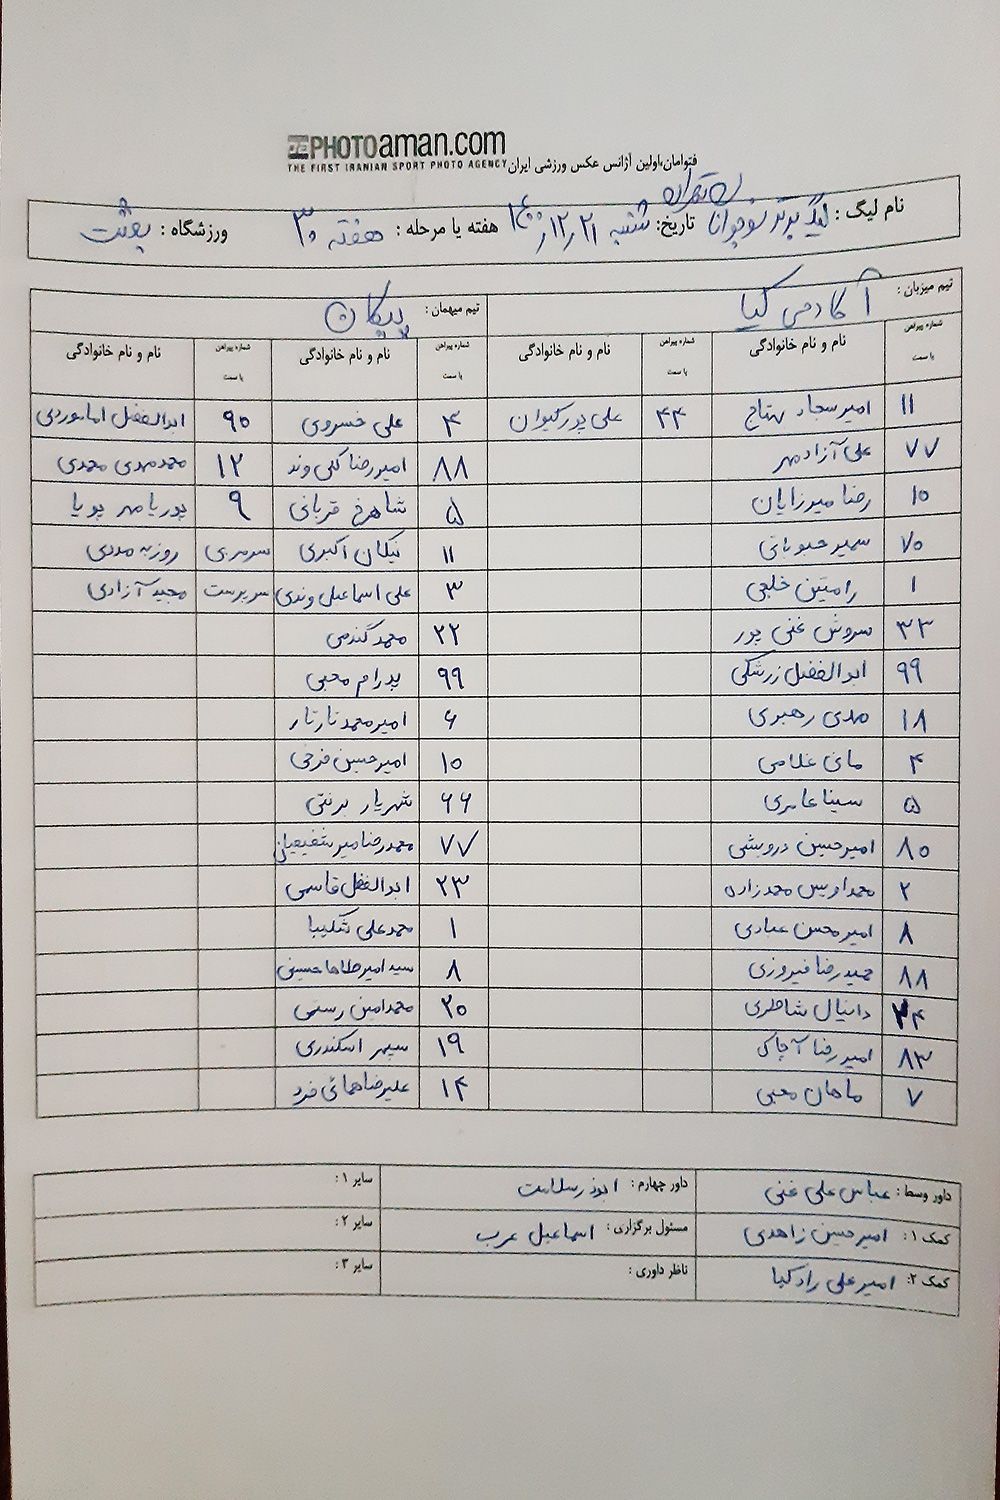 PHOTOaman.com
THE FIRST IRANIAN SPORT PHOTO AGENCY فتوامان،اولین آژانس عکس ورزشی ایران
نام لیگ : لیگ برتر نوجوانان تهران تاریخ: شنبه ۱۴۰۰/۱۲/۲۱ هفته یا مرحله : هفته ۳۰ ورزشگاه :
تیم میزبان : آکادمی کیا تیم میهمان : پیکان
شماره پیراهن یا سمت نام و نام خانوادگی شماره پیراهن یا سمت نام و نام خانوادگی شماره پیراهن یا سمت نام و نام خانوادگی شماره پیراهن یا سمت نام و نام خانوادگی
۱۱ امیر سجاد بهتاج ۴۴ علی پور کیوان ۴ علی خسروی ۹۰ ابوالفضل اماموردی
۷۷ علی آزادمهر ۸۸ امیررضا گلی وند ۱۲ محمد مهدی محمدی
۱۰ رضا میرزایان ۵ شاهرخ قربانی ۹ پوریا مهر پویا
۷۰ سمیر ۱۱ نیکان اکبری سرمربی روزبه مددی
۱ رامتین خلجی ۳ علی اسماعیل وندی سرپرست مجید آزادی
۳۳ سروش غنی پور ۲۲ محمد گندمی
۹۹ ابوالفضل زرشکی ۹۹ پدرام محبی
۱۸ مهدی رهبری ۶ امیرمحمد تارتار
۴ مانی غلامی ۱۰ امیرحسین فرخی
۵ سینا عامری ۶۶ شهریار برنتی
۸۰ امیرحسین درویشی ۷۷ محمدرضا میرشفیعیان
۲ محمد اویس محمدزاده ۲۳ ابوالفضل قاسمی
۸ امیر محسن عبادی ۱ محمد علی شکیبا
۸۸ حمیدرضا فیروزی ۸ سید امیرطاها حسینی
۳۴ دانیال شاطری ۲۰ محمدامین رستمی
۸۳ امیررضا آچاک ۱۹ سپهر اسکندری
۷ ماهان محبی ۱۴ علیرضا همائی فرد
داور وسط : عباس علی غنی داور چهارم : ابوذر سلامت سایر ۱ :
کمک ۱ : امیرحسین زاهدی مسئول برگزاری : اسماعیل عرب سایر ۲ :
کمک ۲: امیرعلی رادکیا ناظر داوری : سایر ۳ :